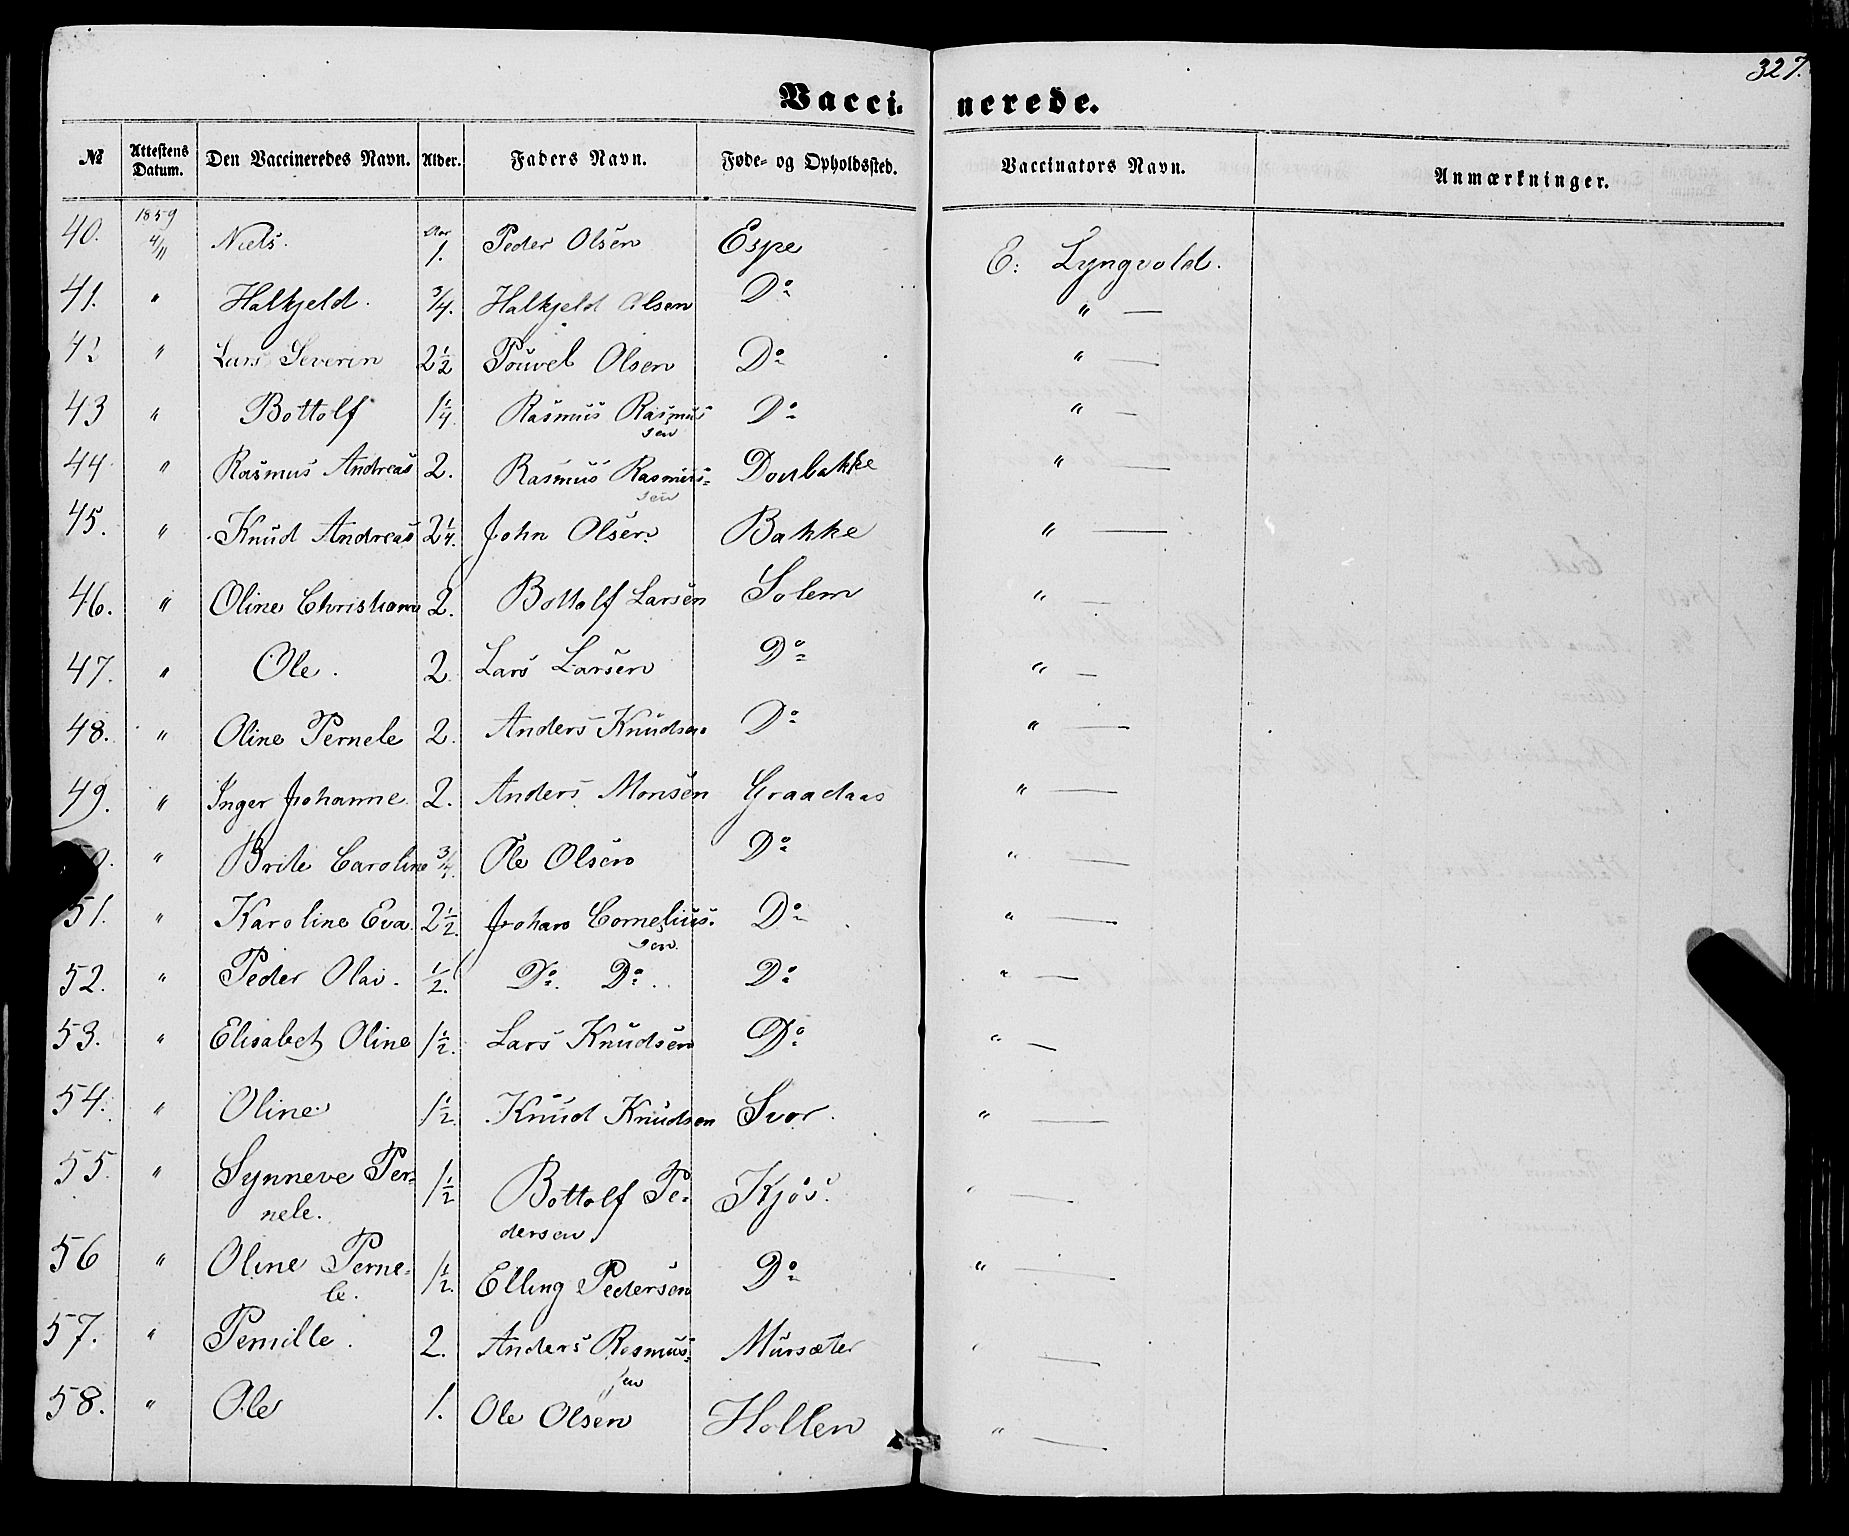 327.
Vacci- nerede.
№ Attestens Datum. Den Vaccineredes Navn. Alder. Faders Navn. Føde- og Opholdssted. Vaccinators Navn. Anmærkninger.
40. 1859 4/11 Niels. Aar 1. Peder Olsen Espe E: Lyngvold.
41. " Halkjeld. 3/4. Halkjeld Olsen Do " —
42 " Lars Severin 2 1/2 Pouvel Olsen Do " —
43 " Bottolf 1 1/4. Rasmus Rasmus Do " —
sen
44 " Rasmus Andreas 2. Rasmus Rasmus= " —
sen
45. " Knud Andreas 2 1/4. John Olsen Bakke " —
46. " Oline Christiane 2. Bottolf Larsen Solem " —
47. " Ole. 2 Lars Larsen Do " —
48. " Oline Pernele 2. Anders Knudsen Do " —
49. " Inger Johanne. 2. Anders Monsen Graadaas " —
0. " Brite Caroline 3/4. Ole Olsen Do " —
51. " Karoline Eva. 2 1/2. Johan Cornelius= Do " —
sen.
52. " Peder Olai. 1/2. Do. Do. Do " —
53. " Elisabet Oline 1 1/2. Lars Knudsen Do " —
54. " Oline 1 1/2. Knud Knudsen Svor. " —
55. " Synneve Per= 1 1/2 Bottolf Pe= Kjøs. " —
nele. dersen
56 " Oline Perne= 1 1/2. Elling Pedersen Do " —
le.
57. " Pernille. 2. Anders Rasmus= Mursæter " —
sen
58. " Ole 1. Ole Olsen Hollen " —